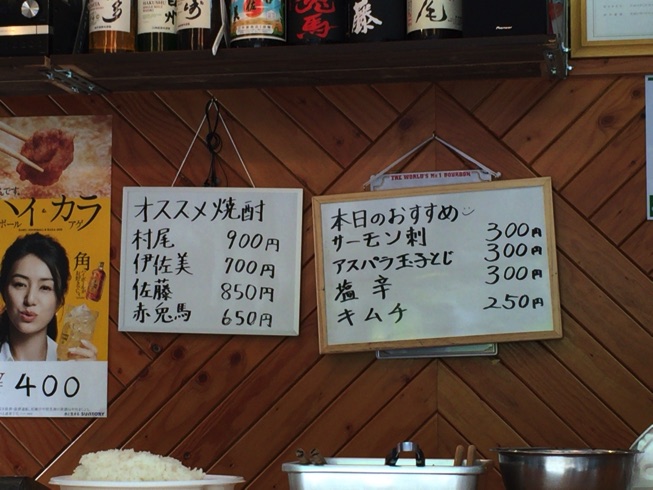 兎馬
藤
尾
Pioneer
ハイ・カラ
ボール
アゲ
角
¥400
SUNTORY
オススメ焼酎
村尾 900円
伊佐美 700円
佐藤 850円
赤兎馬 650円
THE WORLD'S No 1 BOURBON
本日のおすすめ
サーモン刺 300円
アスパラ玉子とじ 300円
塩辛 300円
キムチ 250円